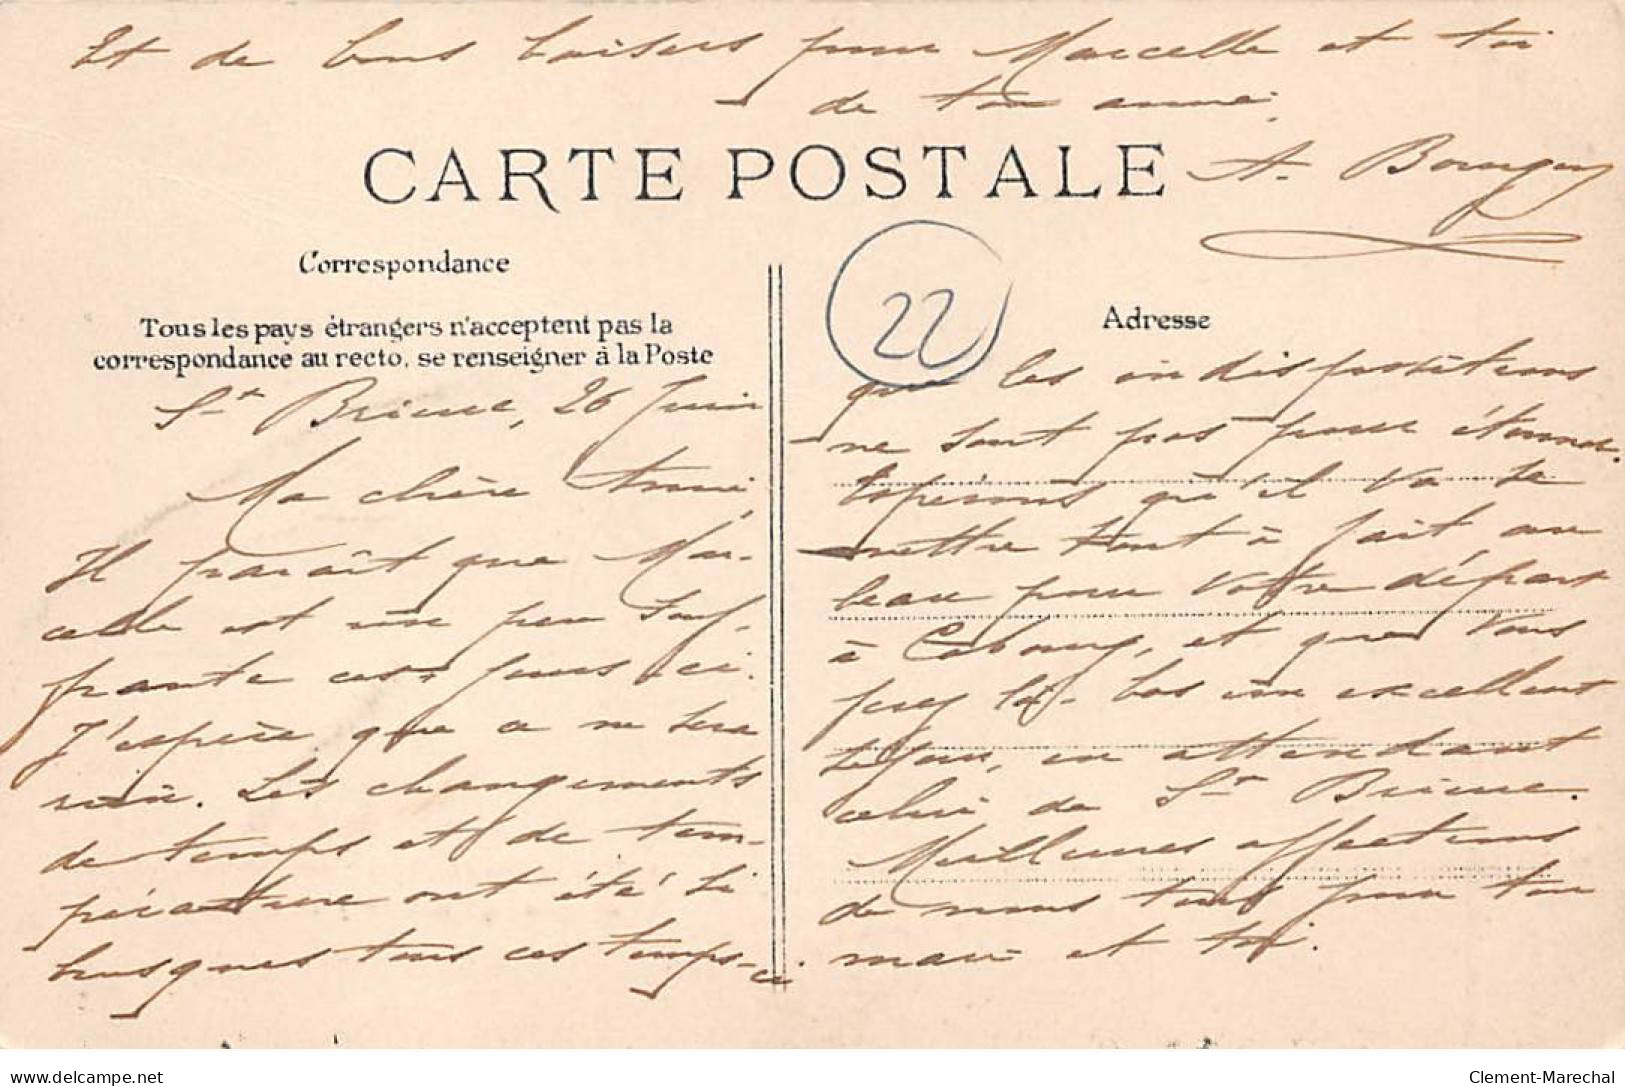 Et de bons baisers pour Marcelle et toi
de ton amie.
CARTE POSTALE
A.
Correspondance
Tous les pays étrangers n'acceptent pas la
correspondance au recto, se renseigner à la Poste
22
Adresse
St Brieuc, 26 Juin
Ma chère amie,
Il paraît que Mar-
celle est un peu souf-
frante ces jours-ci.
J'espère que ce ne sera
rien. Les changements
de temps et de tem-
pérature ont été si
brusques tous ces temps-ci
que les indispositions
ne sont pas pour étonner.
Espérons qu'il va se
mettre tout à fait au
beau pour votre départ
à Cabourg, et que vous
ferez là-bas un excellent
séjour, en attendant
celui de St Brieuc.
Meilleures affections
de nous tous pour ton
mari et toi.
delcampe.net
Clement-Marechal